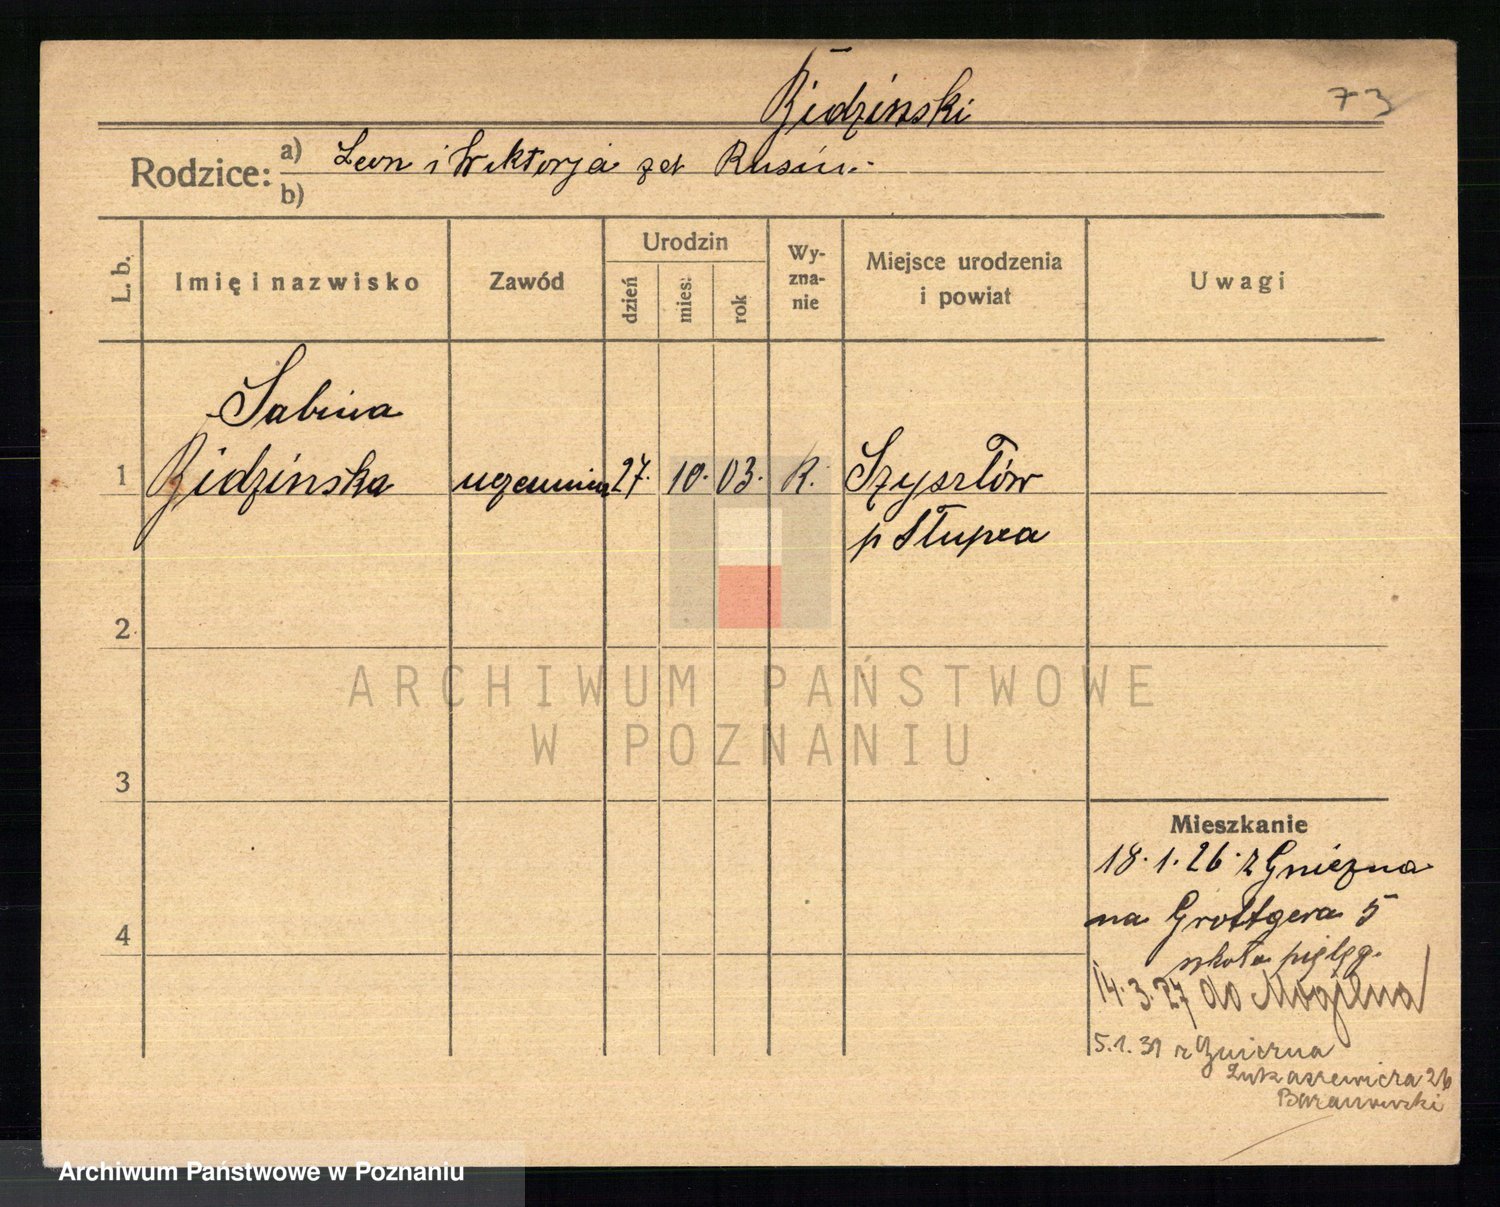 Bidziński
73
Rodzice: a) Leon i Wiktorja zd Rusin.
b)
L. b.
Imię i nazwisko
Zawód
Urodzin
dzień
mies.
rok
Wy-
zna-
nie
Miejsce urodzenia
i powiat
Uwagi
Sabina
1 Bidzińska uczennica 27. 10. 03. R. Szyszłów
p Słupca
2
3
4
Mieszkanie
18.1.26 z Gniezna
na Grottgera 5
szkoła pielęg.
14.3.27 do Mogilna
5.1.31 z Gniezna
Łukaszewicza 26
Baranowski
ARCHIWUM PAŃSTWOWE
W POZNANIU
Archiwum Państwowe w Poznaniu